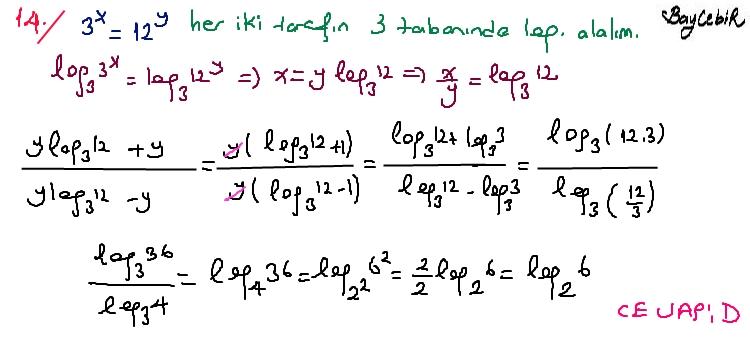 14./ 3^x = 12^y her iki tarafın 3 tabanında log. alalım. BayCebiR
log_3 3^x = log_3 12^y => x = y log_3 12 => x/y = log_3 12
(y log_3 12 + y)/(y log_3 12 - y) = y(log_3 12 + 1)/y(log_3 12 - 1) = (log_3 12 + log_3 3)/(log_3 12 - log_3 3) = log_3 (12.3)/log_3 (12/3)
log_3 36/log_3 4 = log_4 36 = log_2^2 6^2 = 2/2 log_2 6 = log_2 6
CEVAP: D